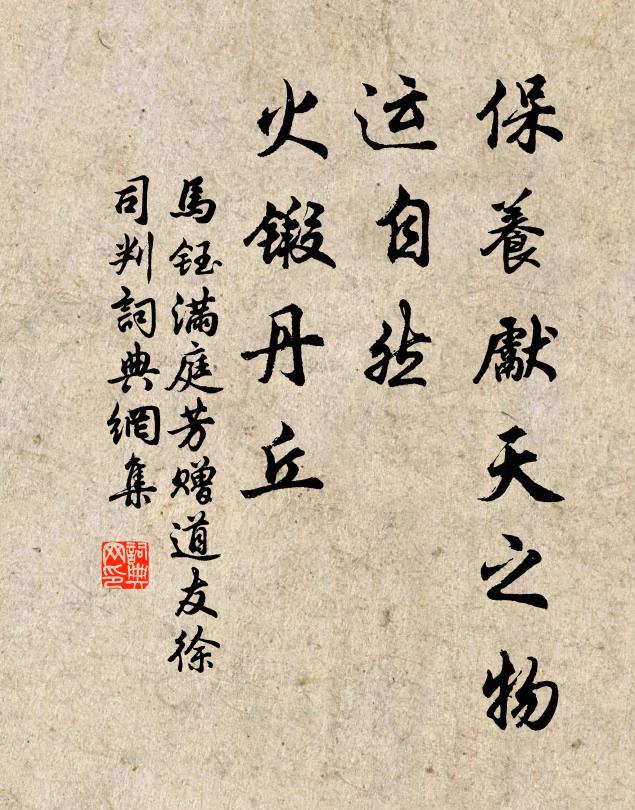 保養獻天之物
运自然
火鍛丹丘
馬鈺满庭芳赠道友徐
司判詞典網集
詞典网印